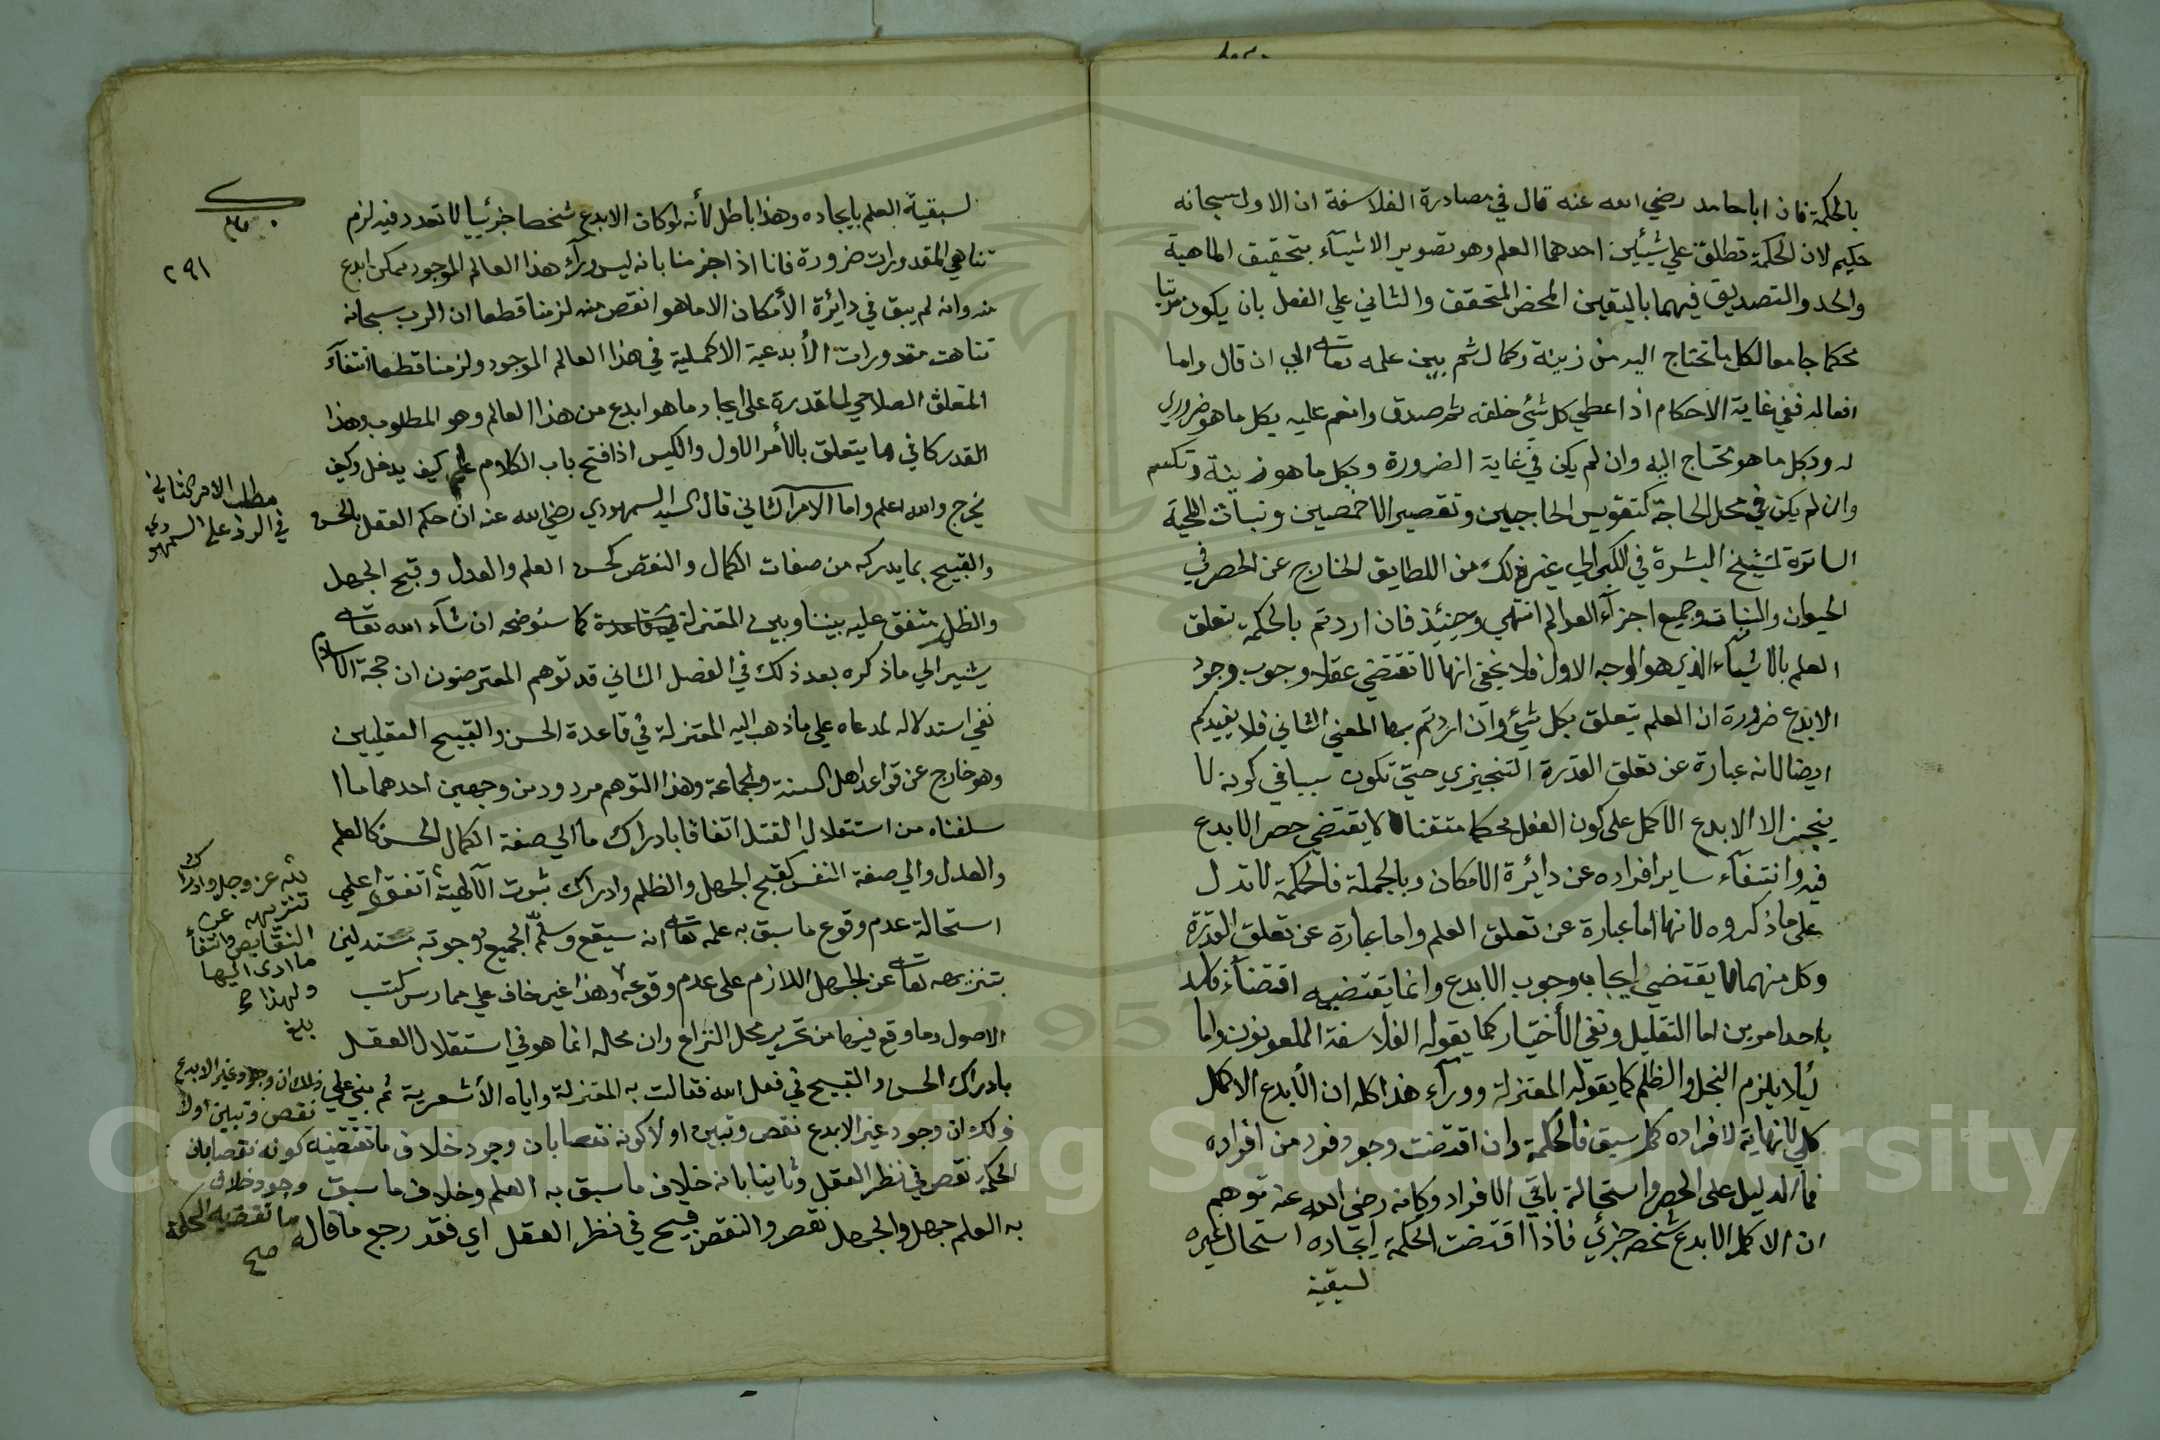 بالحكمة فان ابا حامد رضي الله عنه قال في مصادرة الفلاسفة ان الاول سبحانه
حكيم لان الحكمة تطلق علي شيئين احدهما العلم وهو تصوير الاشيآء بتحقيق الماهية
والحد والتصديق فيهما باليقين المحض المتحقق والثاني علي الفعل بان يكون مرتبا
محكما جامعا لكل ما تحتاج اليه من زينة وكمال ثم بين علمه تعالى الي ان قال واما
افعاله ففي غاية الاحكام اذ اعطي كل شئ خلقه ثم صدق وانعم عليه بكل ما هو ضروري
له وبكل ما هو محتاج اليه وان لم يكن في غاية الضرورة وبكل ما هو زينة و
وان لم يكن في محل الحاجة كتقويس الحاجبين وتقصير الاخمصين ونبات اللحية
الساترة البشرة في الكبر الي غير ذلك من اللطايق الخارج عن الحصر في
الحيوان والنبات وجميع اجزآء العوالم انتهي وحينئذ فان اردتم بالحكمة تعلق
العلم بالاشيآء الذي هو الوجه الاول فلا يخفي انها لا تقتضي عقلا وجوب وجود
الابدع ضرورة ان العلم يتعلق بكل شئ وان اردتم بها المعني الثاني فلا يفيدكم
ايضا لانه عبارة عن تعلق القدرة التنجيزي حتي تكون سببا في كونه لا
ينجز الا الابدع الاكمل على كون الفعل محكما متقنا لا يقتضي حصر الابدع
فيه وانتفآء ساير افراده عن دائرة الامكان وبالجملة فالحكمة لا تدل
على ما ذكروه لانها اما عبارة عن تعلق العلم واما عبارة عن تعلق القدرة
وكل منهما لا يقتضي ايجاب وجوب الابدع وانما يقتضيه اقتضآء
باحد امرين اما التعليل ونفي الأختيار كما يقوله الفلاسفة الملعونون واما
ليلا يلزم البخل والظلم كما يقوله المعتزلة وورآء هذا كله ان الأبدع الاكمل
كلي لا نهاية لافراده كما سبق فالحكمة وان اقتضت وجود فرد من افراده
فما الدليل على الحصر واستحالة باقي الافراد وكانه رضي الله عنه توهم
ان الاكمل الابدع شخص جزئي فاذا اقتضت الحكمة ايجاده استحال غيره
لسبقية
لسبقية العلم بايجاده وهذا باطل لأنه لو كان الابدع شخصا جزئيا لا تعدد فيه لزم
تناهي المقدورات ضرورة فانا اذا جزمنا بانه ليس ورآء هذا العالم الموجود ممكن ابدع
منه وانه لم يبق في دايرة الأمكان الا ما هو انقص منه لزمنا قطعا ان الرب سبحانه
تناهت مقدورات الأبدعية الاكملية في هذا العالم الموجود ولزمنا قطعا انتفآء
التعلق الصلاحي لما قدرة على ايجاد ما هو ابدع من هذا العالم وهو المطلوب وهذا
القدر كاف في ما يتعلق بالأمر الاول والكيس اذا فتح باب الكلام علم كيف يدخل وكيف
يخرج والله اعلم واما الامر الثاني قال السيد السمهودي رضي الله عنه ان حكم العقل بالحسن
والقبيح بما يدركه من صفات الكمال والنقص كحسن العلم والعدل وقبح الجهل
والظلم متفق عليه بيننا وبين المعتزلة كما سنوضحه ان شآء الله تعالى
يشير الي ما ذكره بعد ذلك في الفصل الثاني قد توهم المعترضون ان حجة الاسلام
نفي استدلاله لمدعاه علي ما ذهب اليه المعتزلة في قاعدة الحسن والقبيح العقليين
وهو خارج عن قواعد اهل السنة والجماعة وهذا التوهم مردود من وجهين احدهما ما ا
سلفناه من استقلال العقل اتفاقا بادراك ما الي صفة الكمال الحسن كالعلم
والعدل والي صفة النقص كقبح الجهل والظلم وادراك ثبوت الآلهية اتفق علي
استحالة عدم وقوع ما سبق به علمه تعالى انه سيقع وسلم الجميع وجوبه مستدلين
بتنزيهه تعالى عن الجهل اللازم على عدم وقوعه وهذا غير خاف علي ممارس كتب
الاصول وما وقع فيها من تحرير محل النزاع وان محاله انما هو في استقلال العقل
بادراك الحسن والقبيح في فعل الله فقالت به المعتزلة واباه الأشعرية ثم بني علي
ذلك ان وجود غير الابدع نقص وتبين اولا كونه نقصا بان وجود خلاف ما تقتضيه
الحكمة نقص في نظر العقل وثانيا بانه خلاف ما سبق به العلم وخلاف ما سبق
به العلم جهل والجهل نقص والنقص قبيح في نظر العقل اي فقد رجع ما قاله
٢٩١
مطلب الامر الثاني
في الرد على السمهودي
لله عز وجل وادراك
تنزيهه عن
النقايص وانتفأ
ما ادى اليها
ولهذا صح
بلغ
ذلك ان وجود غير الابدع
نقص وتبين اولا
كونه نقصا بان
وجود خلاف
ما تقتضيه الحكمة
صح